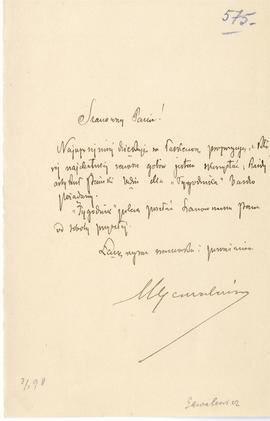 575.
Szanowny Panie!
Najuprzejmiej dziękuję za łaskawą propozycję, z któ
rej najchętniej zawsze gotów jestem skorzystać. Każdy
artykuł Pański będzie dla "Tygodnika" bardzo
pożądany.
"Tygodnik" poleca przesłać Szanownemu Panu
od soboty przyszłej.
Łączę wyrazy szacunku i poważania
Gawalewicz